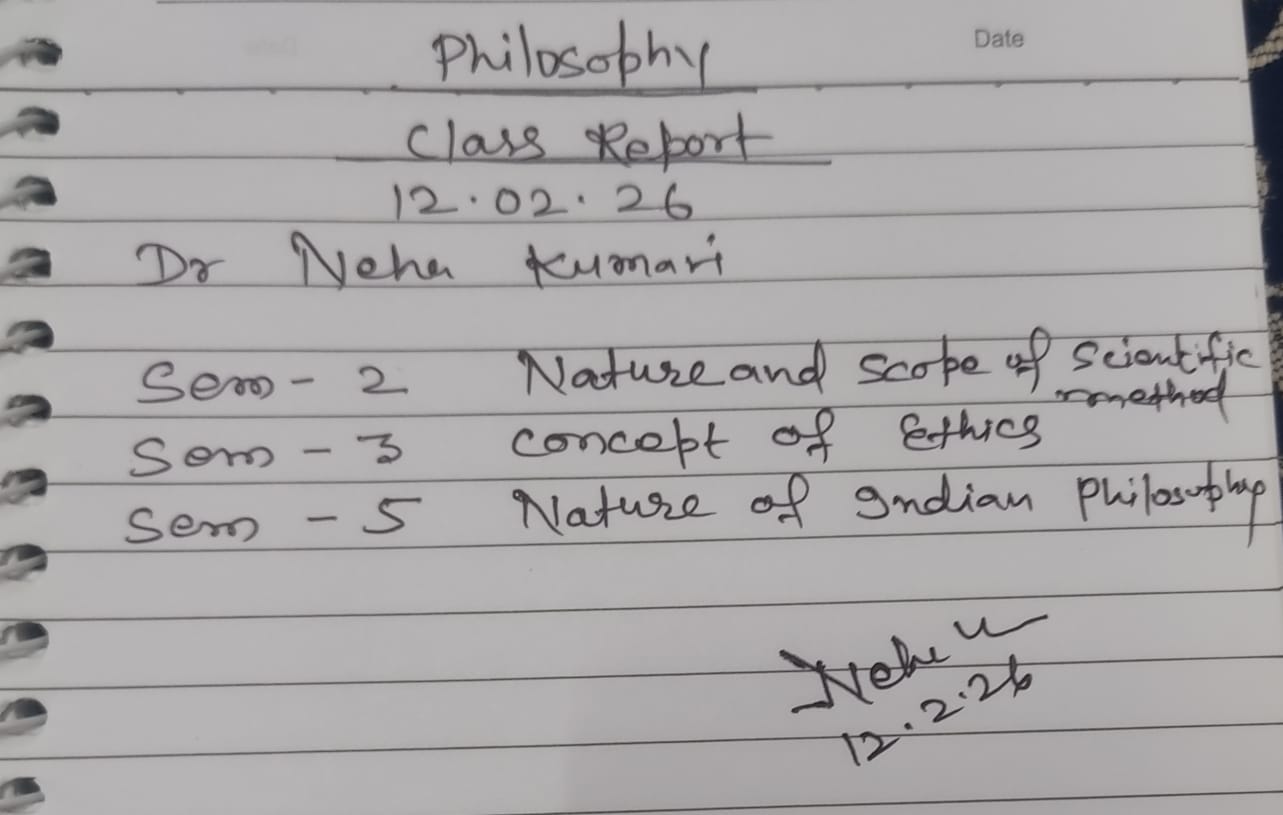 Date
Philosophy
Class Report
12.02.26
Dr Neha Kumari
Sem - 2 Nature and scope of Scientific
method
Sem - 3 Concept of Ethics
Sem - 5 Nature of Indian Philosophy
Neha
12.2.26